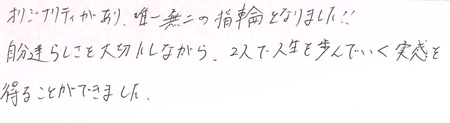 オリジナリティがあり、唯一無二の指輪となりました!!
自分達らしさを大切にしながら、2人で人生を歩んでいく実感を
得ることができました.